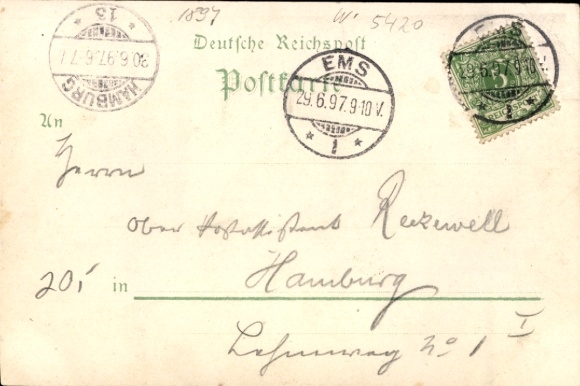 1897 W. 5420
* 13 *
30.6.97.6-7
HAMBURG
Deutsche Reichspost
Postkarte
EMS
29.6.97.9-10V.
* 1 *
EMS
29.6.97.9-10
1
5
An
Herrn
Ober Postassistent Reckewell
20,- in Hamburg
Lehmweg No 1 I